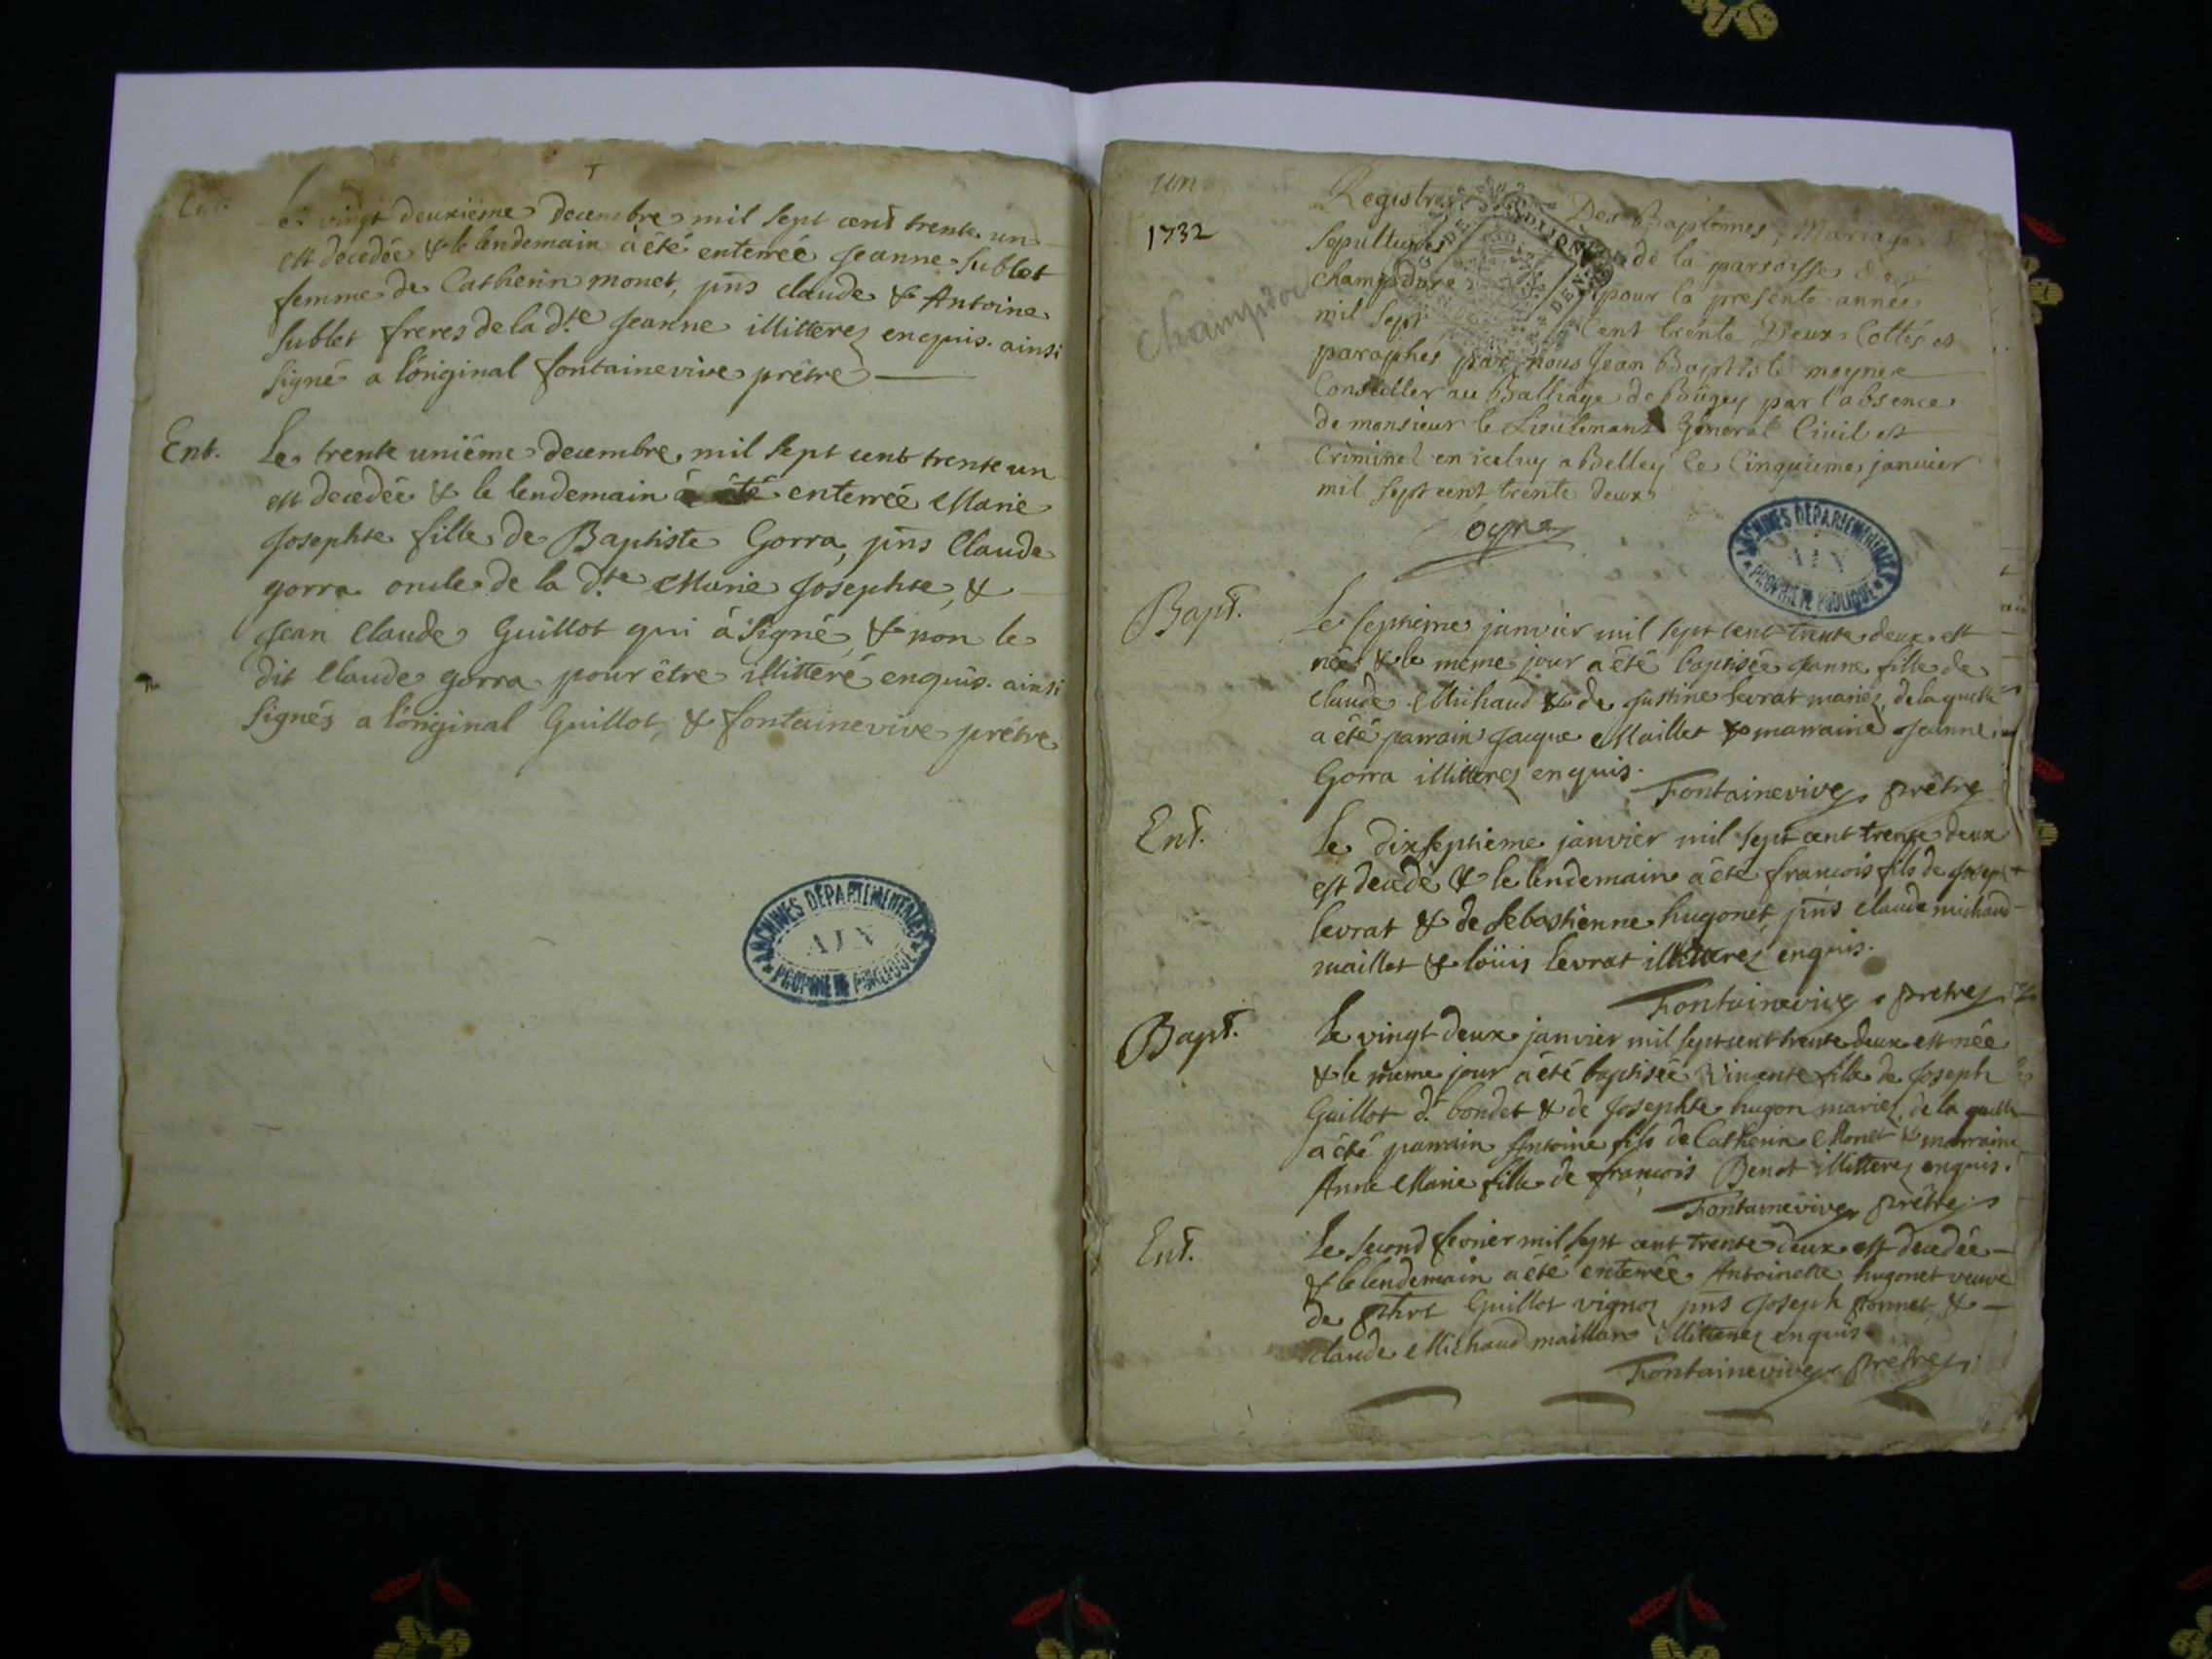 Ent.
Le vingt deuxiéme decembre mil sept cent trente un
est decedée & le lendemain à été enterreé Jeanne Sublet
femme de Catherin monet, pñs claude & Antoine
Sublet freres de la d.te Jeanne illitterez enquis. ainsi
signé a l'original fontainevive prêtre
Ent.
Le trente uniéme decembre mil sept cent trente un
est decedeé & le lendemain à été enterreé Marie
Josephte fille de Baptiste Gorra, pñs Claude
gorra oncle de la d.te Marie Josephte, &
Jean Claude Guillot qui à signé, & non le
dit Claude gorra pour être illitteré enquis. ainsi
signés a l'original Guillot, & fontainevive prêtre
ARCHIVES DEPARTEMENTALES
AIN
PROPRIETE PUBLIQUE
un
1732
champdor
Registre Des Baptêmes, Mariages
sepultures de la parroisse de
champdore pour la presente année
mil sept Cent trente Deux Cottés et
paraphes par nous Jean Baptiste moyne
Conseiller au Balliage de Bugey par l'absence
de monsieur le Lieutenant General Civil et
Criminel en iceluy a Belley le Cinquieme janvier
mil sept cent trente deux
ARCHIVES DEPARTEMENTALES
AIN
PROPRIETE PUBLIQUE
Bapt.
Le septiéme janvier mil sept cent trente deux est
née & le meme jour a été baptisée Jeanne fille de
Claude Michaud & de Justine levrat mariez, de laquelle
a été parrain Jacque Maillet & marraine Jeanne
Gorra illitterez enquis.
Fontainevive prêtre
Ent.
Le dixseptieme janvier mil sept cent trente deux
est decedé & le lendemain a été francois fils de Joseph
levrat & de Sebastienne hugonet, pñs claude michaud
maillet & loüis levrat illitterez enquis.
Fontainevive prêtre
Bapt.
Le vingt deux janvier mil sept cent trente deux est née
& le meme jour a été baptisée Vincente fille de Joseph
Guillot d.t bondet & de Josephte hugon mariez, de la quelle
a été parrain Antoine fils de Catherin Monet & marraine
Anne Marie fille de francois Benot illitterez enquis.
Fontainevive prêtre
Ent.
Le second fevrier mil sept cent trente deux est decedée
& le lendemain a été enterrée Antoinette hugonet veuve
de Guillot vignoz pñs Joseph &
claude Michaud illitterez enquis
Fontainevive prêtre